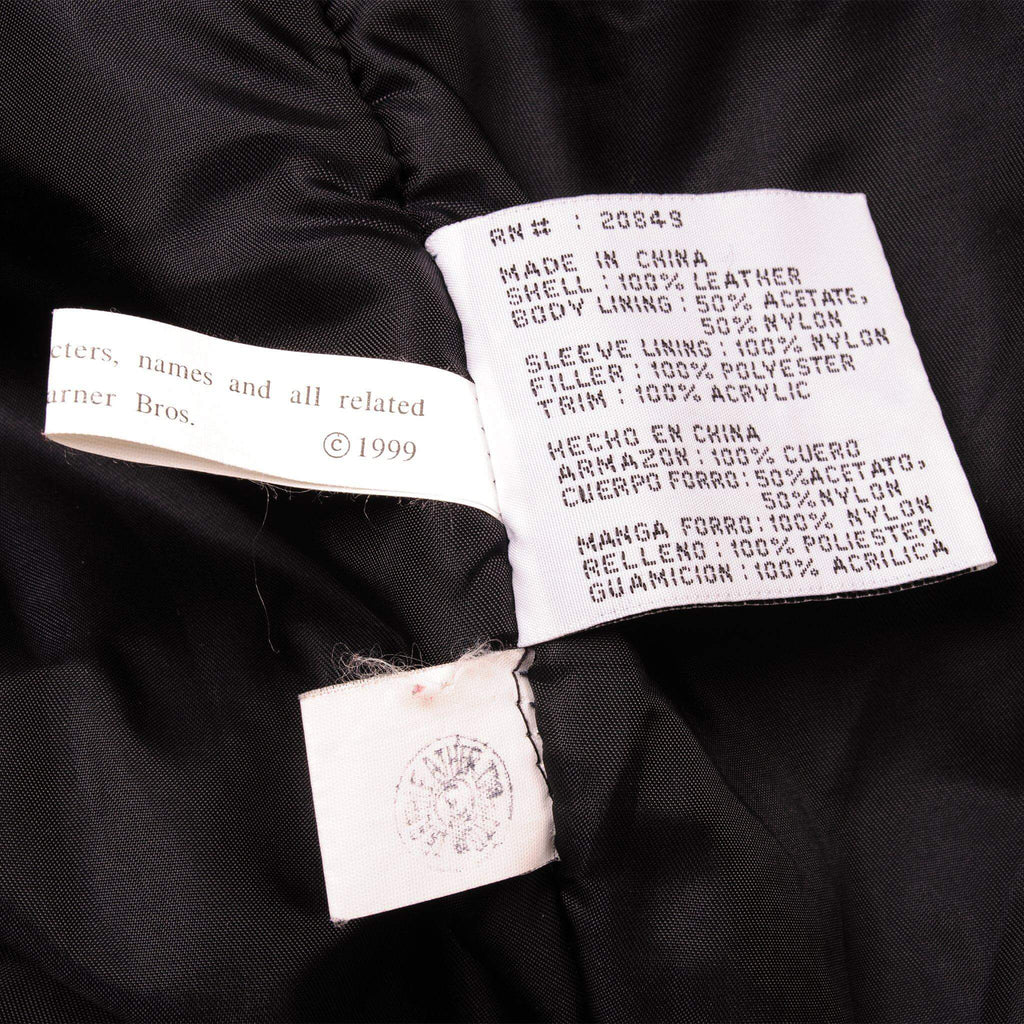 RN# : 20849
MADE IN CHINA
SHELL : 100% LEATHER
BODY LINING : 50% ACETATE,
50% NYLON
SLEEVE LINING : 100% NYLON
FILLER : 100% POLYESTER
TRIM : 100% ACRYLIC
HECHO EN CHINA
ARMAZON : 100% CUERO
CUERPO FORRO : 50% ACETATO,
50% NYLON
MANGA FORRO : 100% NYLON
RELLENO : 100% POLIESTER
GUAMICION : 100% ACRILICA
cters, names and all related
arner Bros.
© 1999